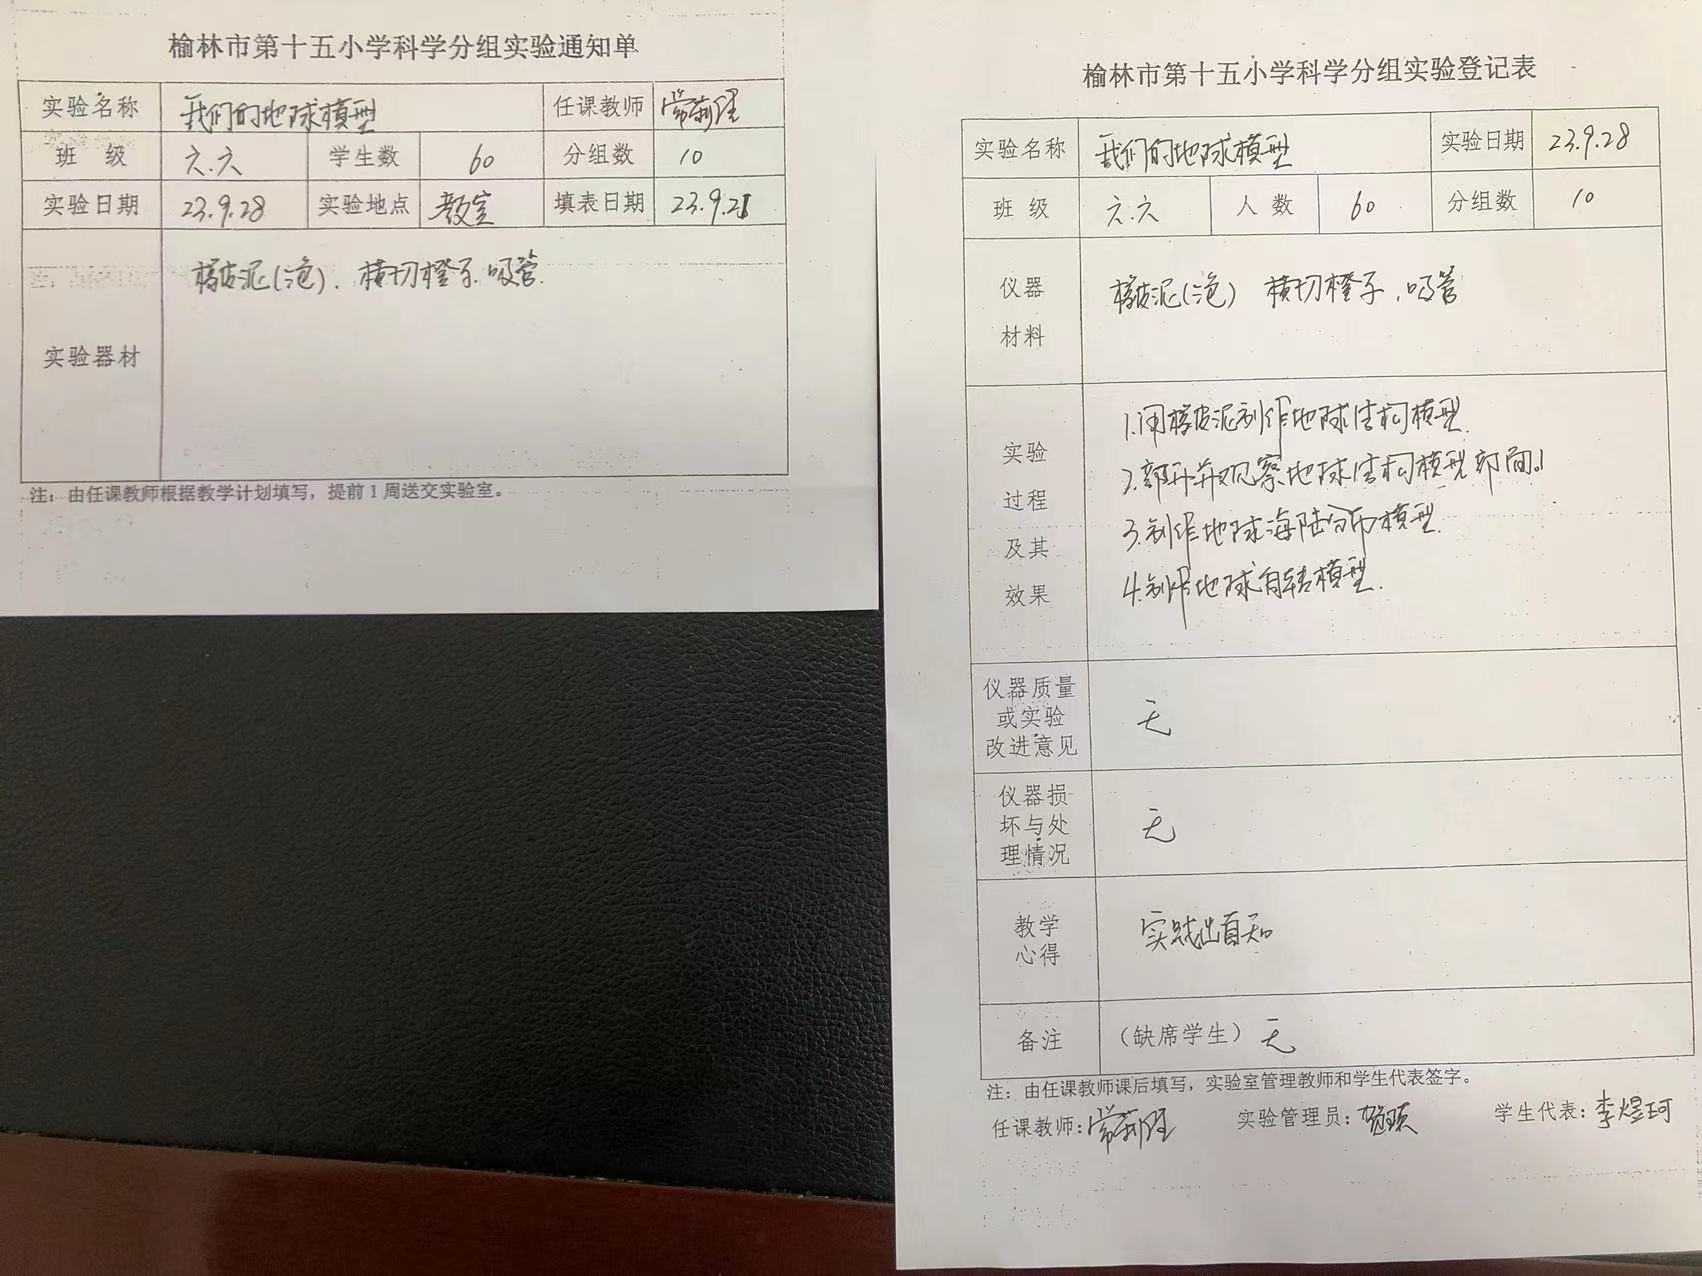 榆林市第十五小学科学分组实验通知单
实验名称 我们的地球模型 任课教师 常莉
班 级 六.六 学生数 60 分组数 10
实验日期 23.9.28 实验地点 教室 填表日期 23.9.21
实验器材 橡皮泥(三色). 横切橙子. 吸管.
注：由任课教师根据教学计划填写，提前1周送交实验室。
榆林市第十五小学科学分组实验登记表
实验名称 我们的地球模型 实验日期 23.9.28
班 级 六.六 人 数 60 分组数 10
仪器
材料
橡皮泥(三色) 横切橙子，吸管
实验
过程
及其
效果
1.用橡皮泥制作地球结构模型.
2.掰开并观察地球结构模型剖面.
3.制作地球海陆分布模型.
4.制作地球自转模型.
仪器质量
或实验
改进意见
无
仪器损
坏与处
理情况
无
教学
心得
实践出真知
备注 （缺席学生）无
注：由任课教师课后填写，实验室管理教师和学生代表签字。
任课教师：常莉 实验管理员： 学生代表：李煜珂